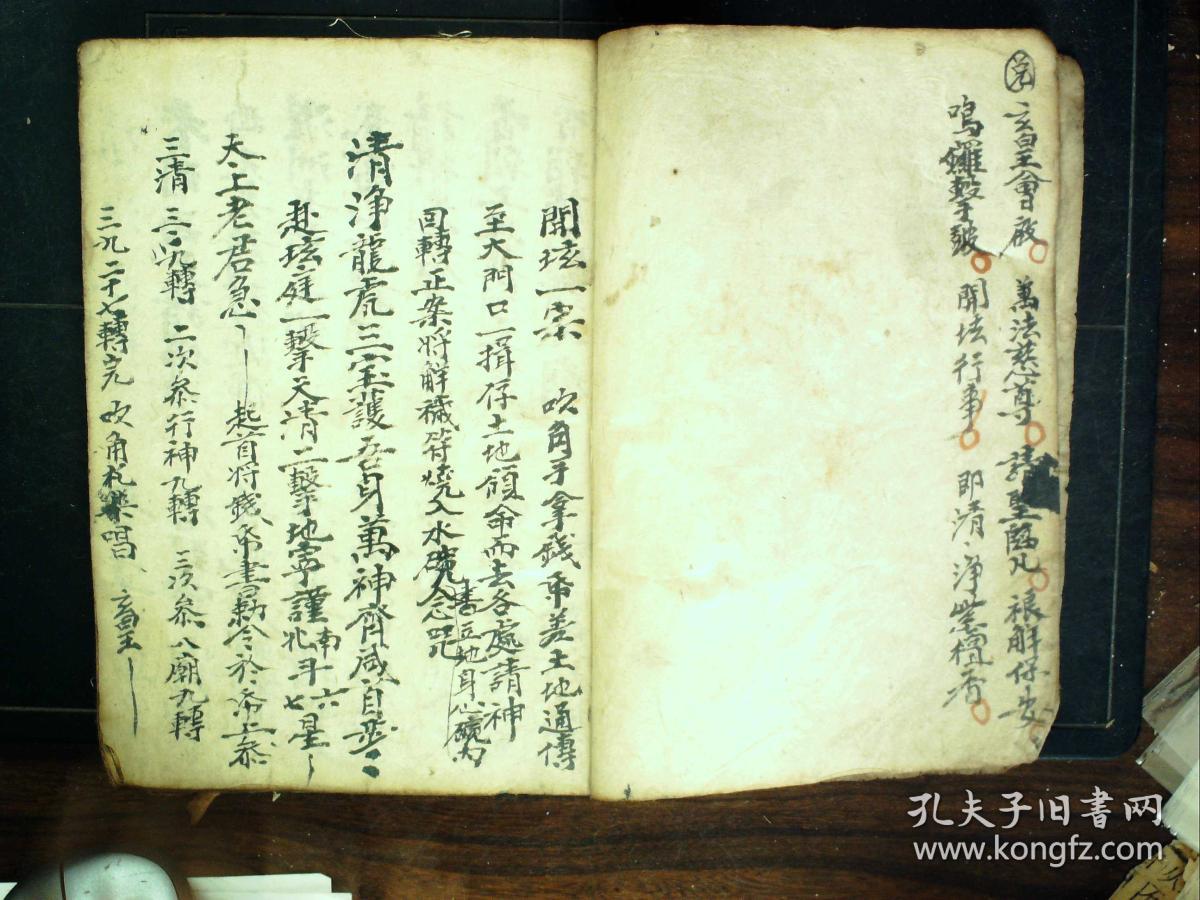 玄皇會啟 萬法慈尊 請聖臨凡 禳解保安
鳴鑼擊鼓 開坛行事 即清淨 紫檀香
開坛一宗 吹角手拿錢帋差土地通傳
至大門口一揖仔土地領命而去各處請神
回轉正案將解穢符燒入水碗念咒
書五地身心碗內
清淨龍虎三宝護吾身萬神齊咸自
赴坛庭一擊天清二擊地寧謹南斗六星北七
太上老君急 起首將錢帋畫勅令於帋上參
三清 三次九轉 二次參行神九轉 三次參八廟九轉
三九二十七轉完 吹角礼樂唱 玄皇
孔夫子旧書网
www.kongfz.com